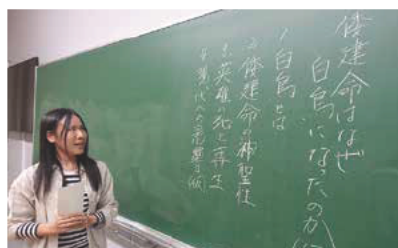 倭建命はなぜ
白鳥になったのか
1 白鳥とは
2 倭建命の神聖性
3 英雄の死と再生
4